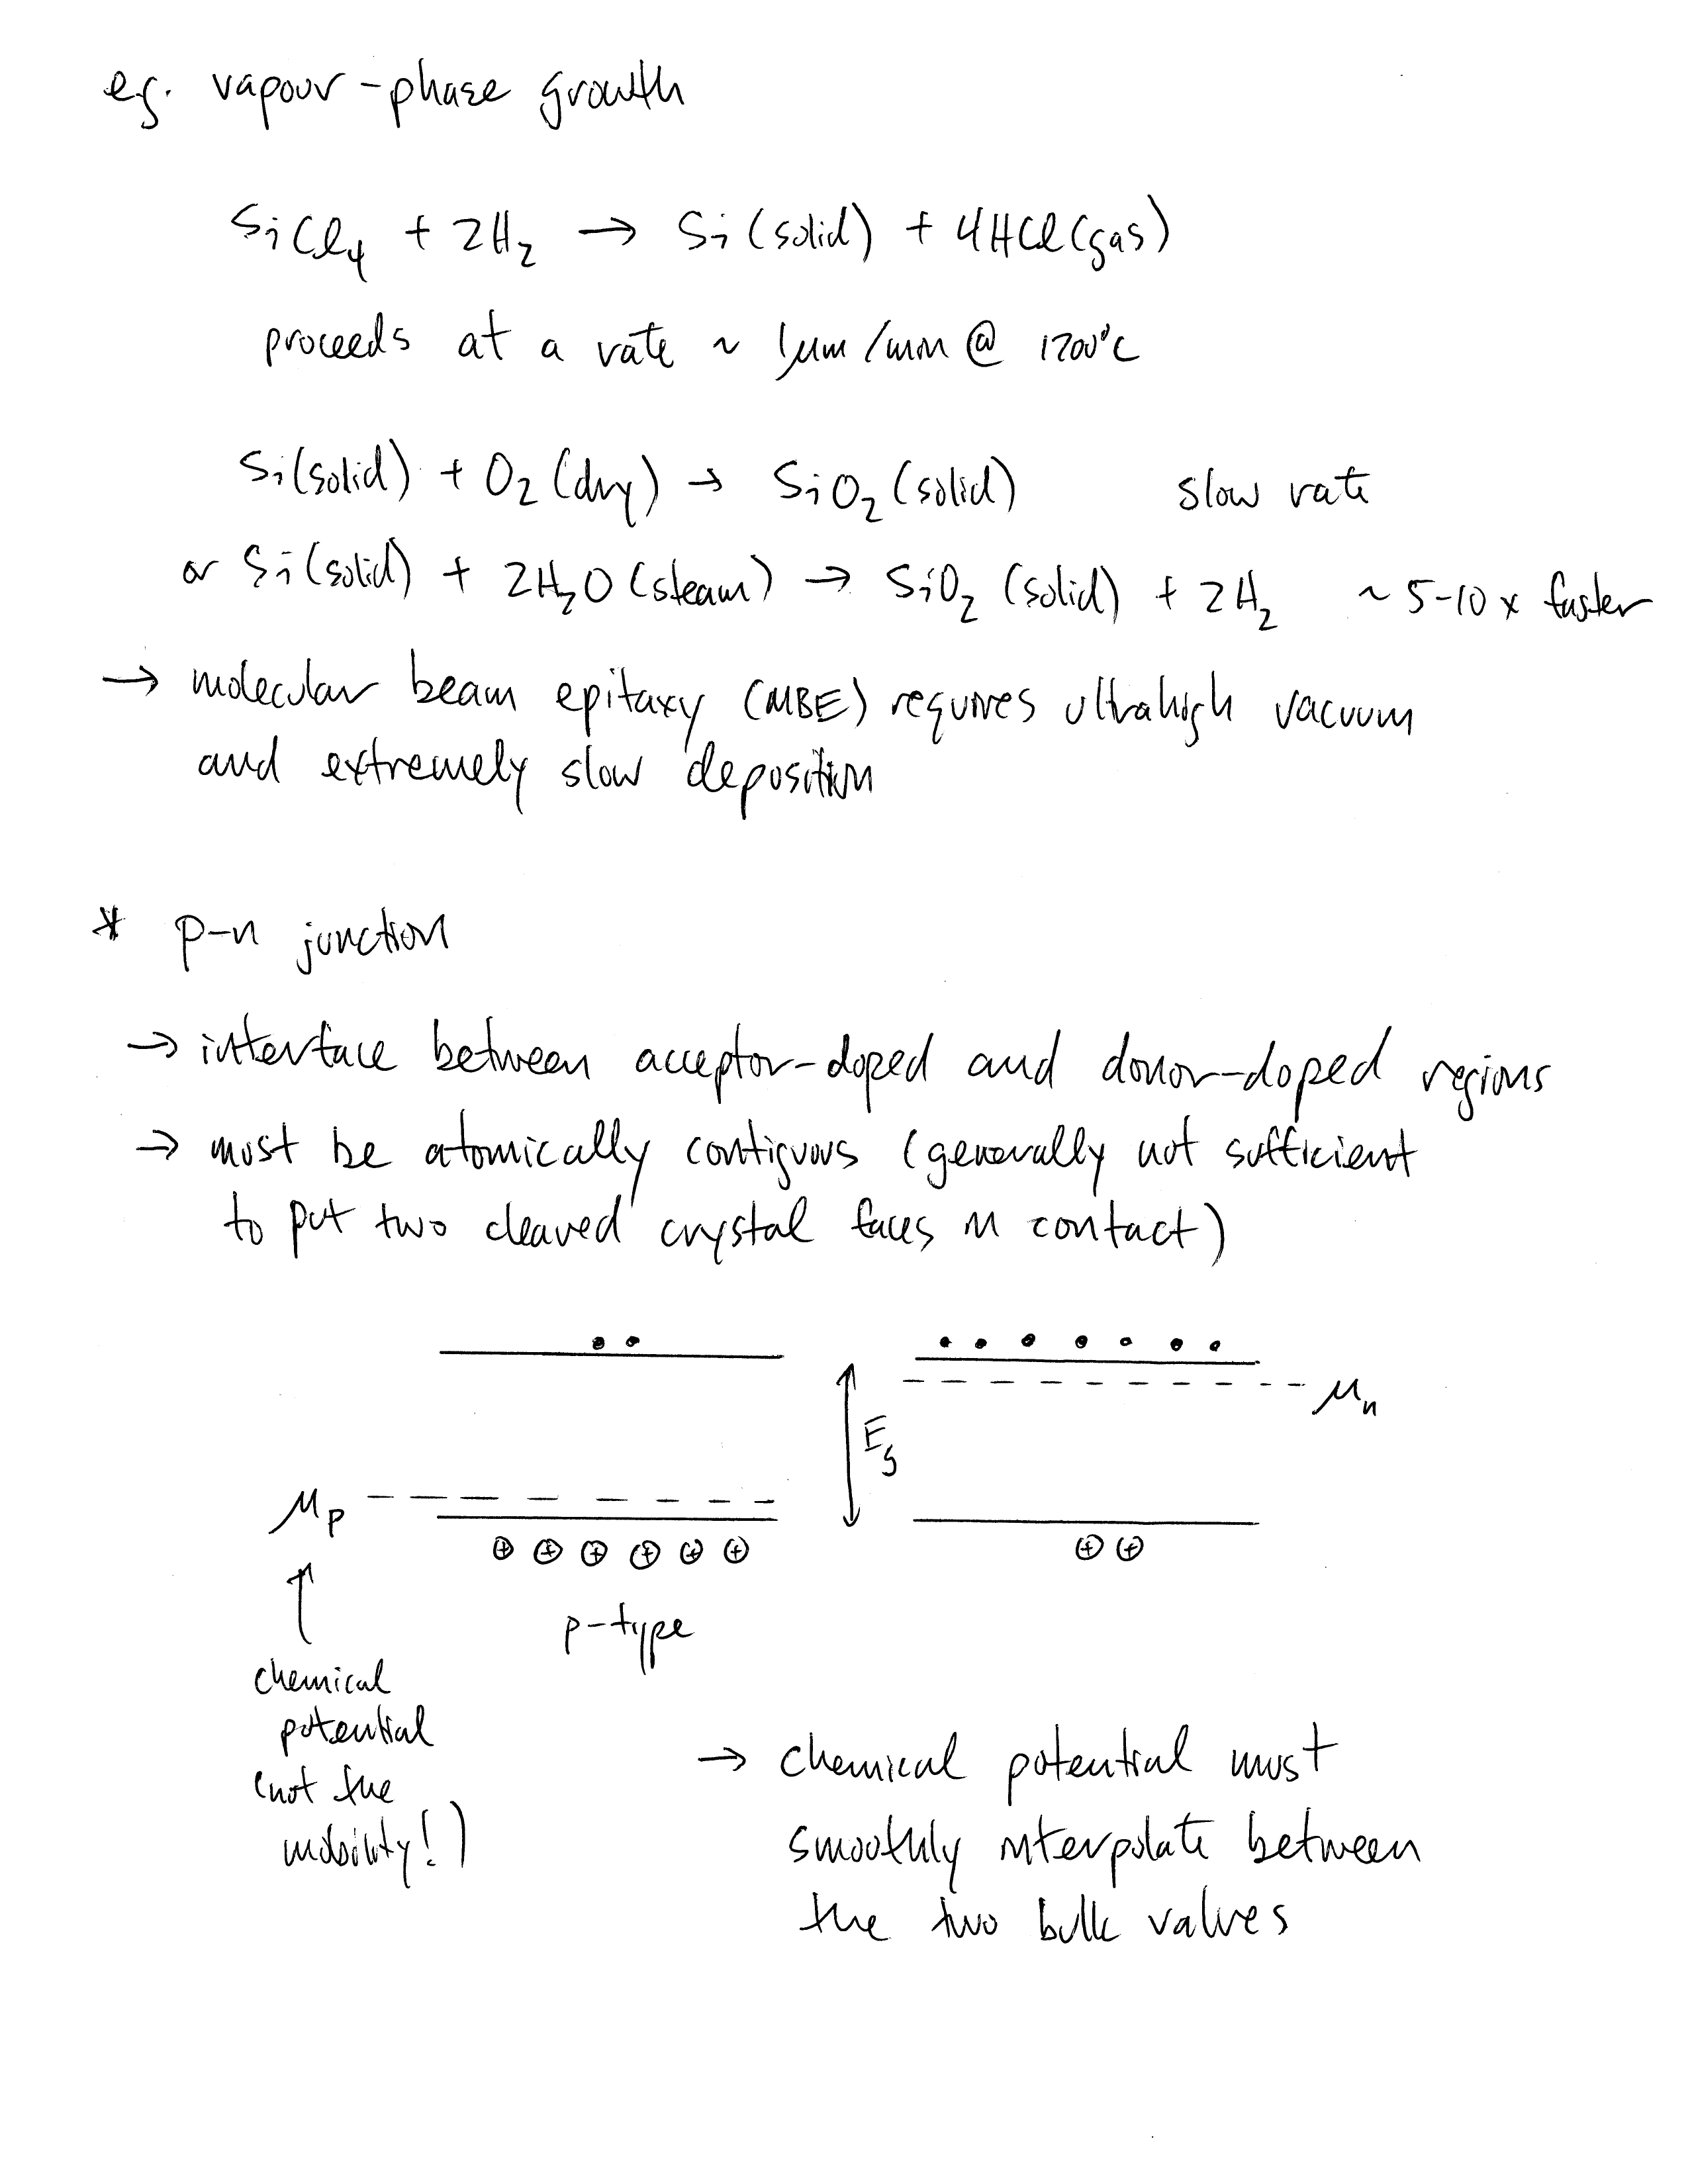 eg. vapour-phase growth
SiCl₄ + 2H₂ → Si (solid) + 4HCl (gas)
proceeds at a rate ~ 1µm/min @ 1200°C
Si(solid) + O₂ (dry) → SiO₂ (solid) slow rate
or Si(solid) + 2H₂O (steam) → SiO₂ (solid) + 2H₂ ~ 5-10x faster
→ molecular beam epitaxy (MBE) requires ultrahigh vacuum
and extremely slow deposition
* p-n junction
→ interface between acceptor-doped and donor-doped regions
→ must be atomically contiguous (generally not sufficient
to put two cleaved crystal faces in contact)
μₙ
E_g
μₚ
p-type
chemical
potential
(not the
mobility!)
→ chemical potential must
smoothly interpolate between
the two bulk values